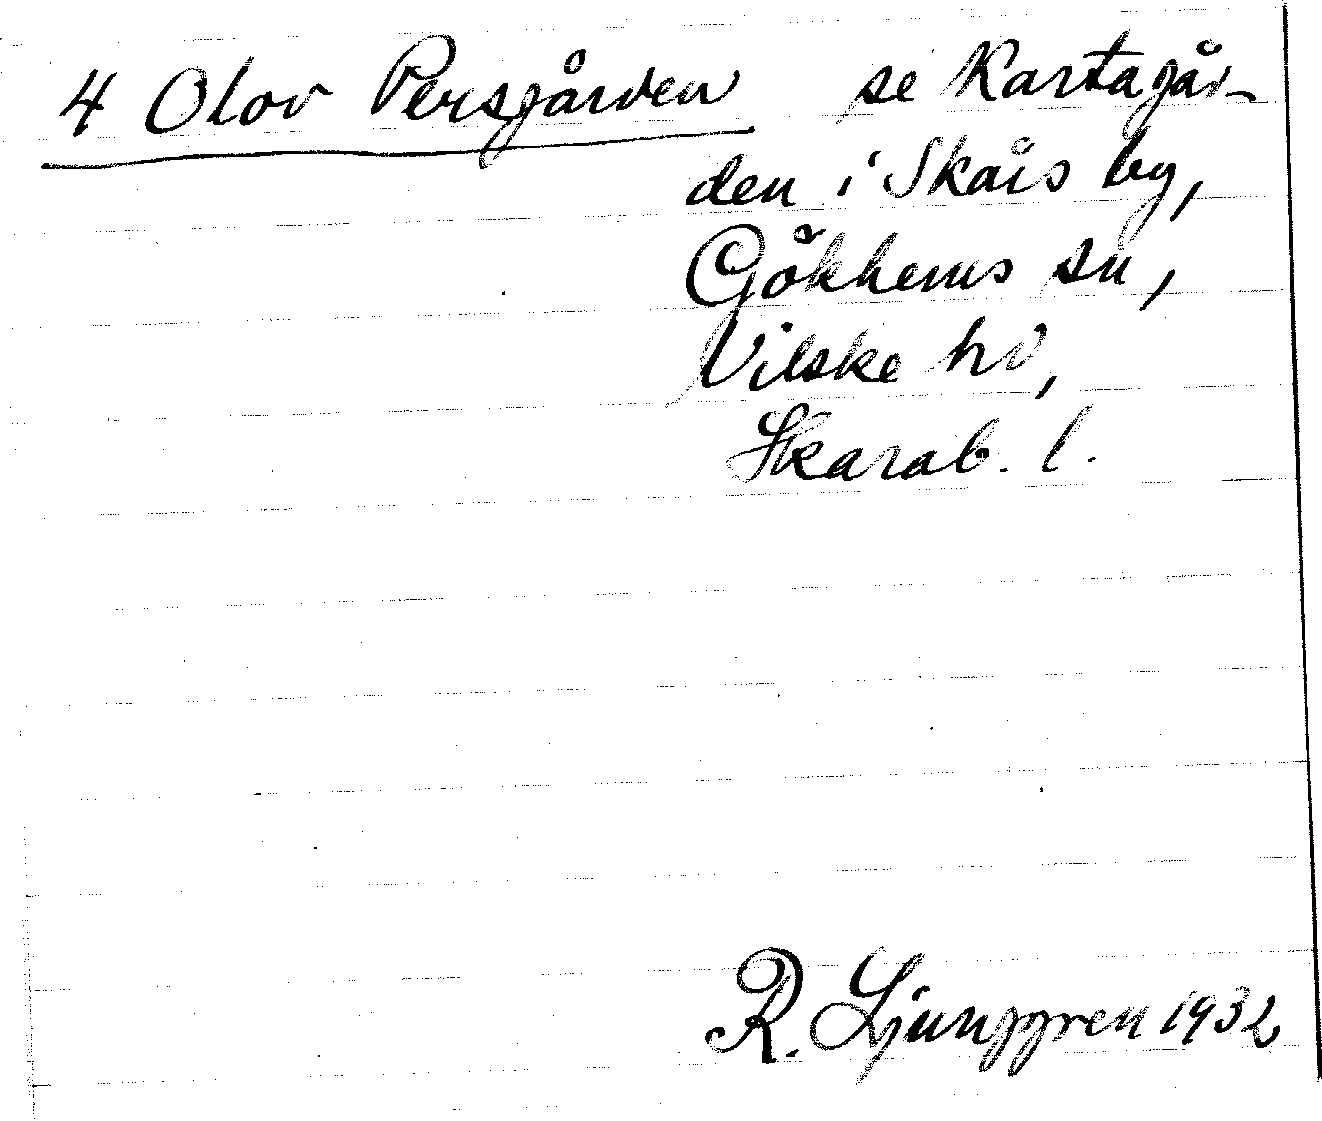 4 Olov Persgården se Kartagår-
den i Skårs by,
Gökhems sn,
Vilske hd,
Skarab. l.
R. Ljunggren 1932